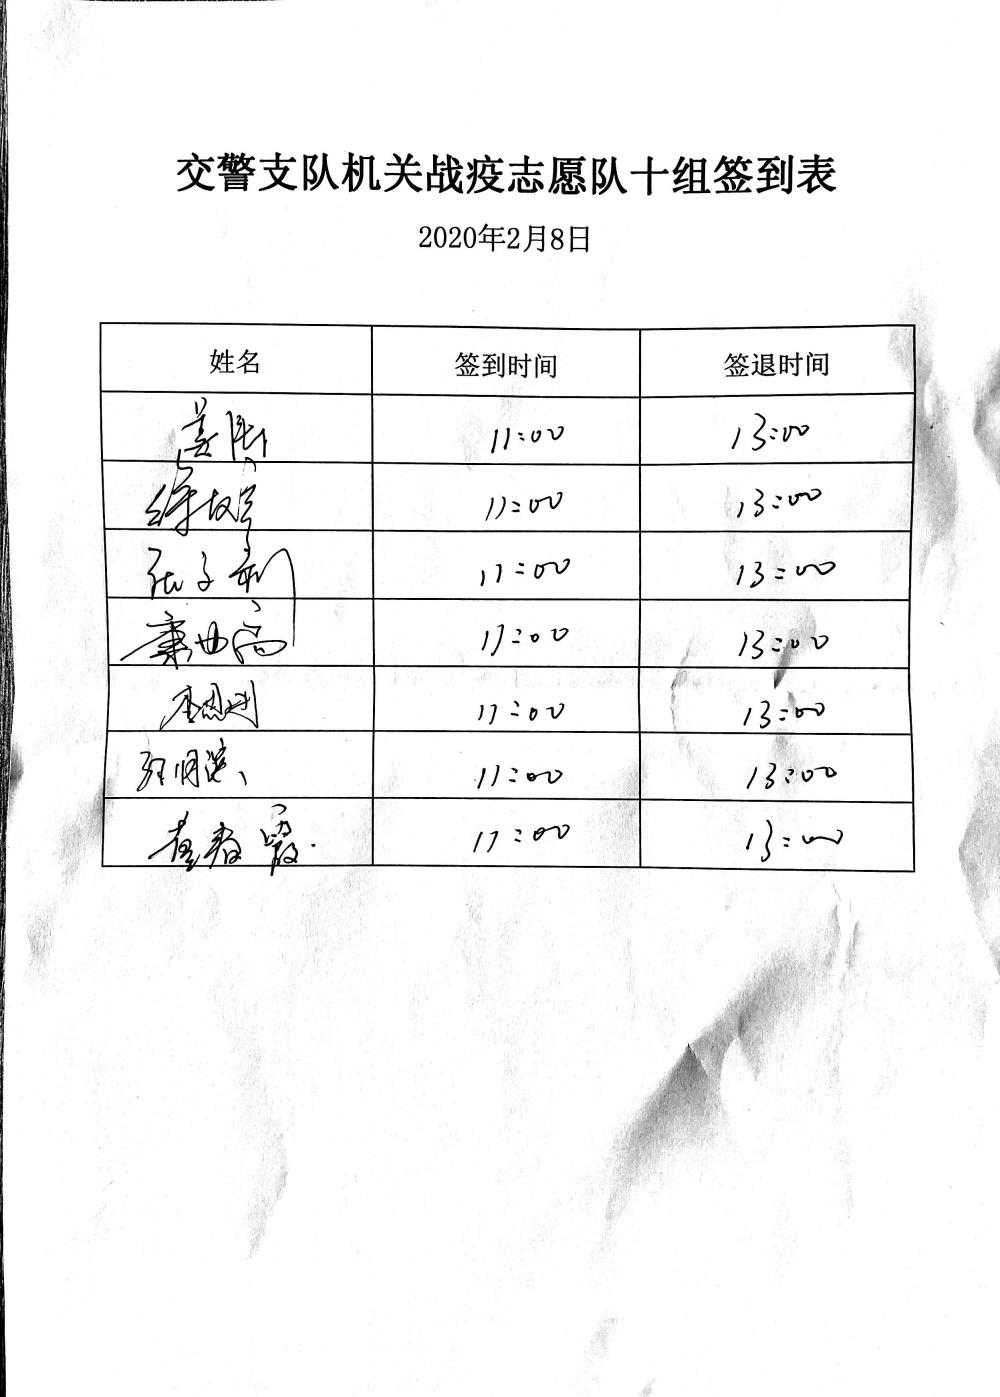 交警支队机关战疫志愿队十组签到表
2020年2月8日
姓名 签到时间 签退时间
姜 11:00 13:00
徐 11:00 13:00
张子利 11:00 13:00
康世高 11:00 13:00
李恩进 11:00 13:00
11:00 13:00
董春霞 11:00 13:00